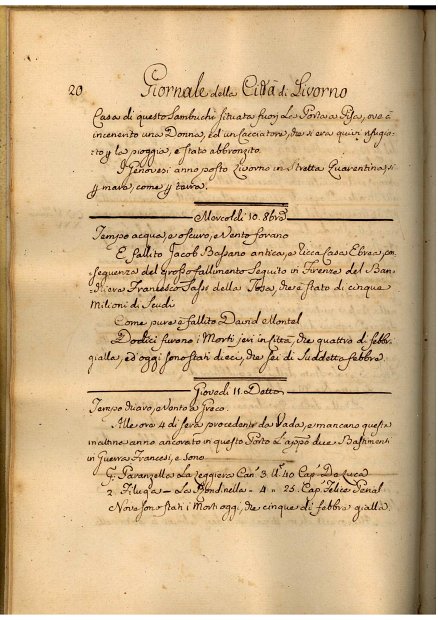 20 Giornale della Città di Livorno
Casa di questo Sambuchi situata fuori La Porta a Pisa, ove à
incenerito una Donna, ed un Cacciatore, che si era quivi rifugia-
to p la pioggia, è stato abbronzito.
I Genovesi anno posto Livorno in stretta Quarentina, si
p mare, come p terra.
Mercoldì 10. 8bre
Tempo acqua, e oscuro, e Vento forano
E fallito Jacob Bassano antica, e ricca Casa Ebrea, con-
seguenza del grosso fallimento Seguito in Firenze del Ban-
chiera Francesco Sassi della Tosa, che è stato di cinque
Milioni di Scudi
Come pure è fallito David Montel
Dodici furono i Morti jeri in Città, che quattro di febbre
gialla, ed oggi sono stati dieci, che sei di Suddetta febbre.
Giovedì 11. Detto
Tempo chiaro, e Vento a Greco.
Alle ore 4 di sera procedenti da Vada, e mancano questa
mattina anno ancorato in questo Porto L'appo due Bastimenti
in Guerra Francesi, e sono
Paranzella La Leggiera Can. 3 40 Cap. De Luca
2. Filuga - La Rondinella - 4 " 25. Cap. Felice Penal
Nove sono stati i Morti oggi, che cinque di febbre gialla.